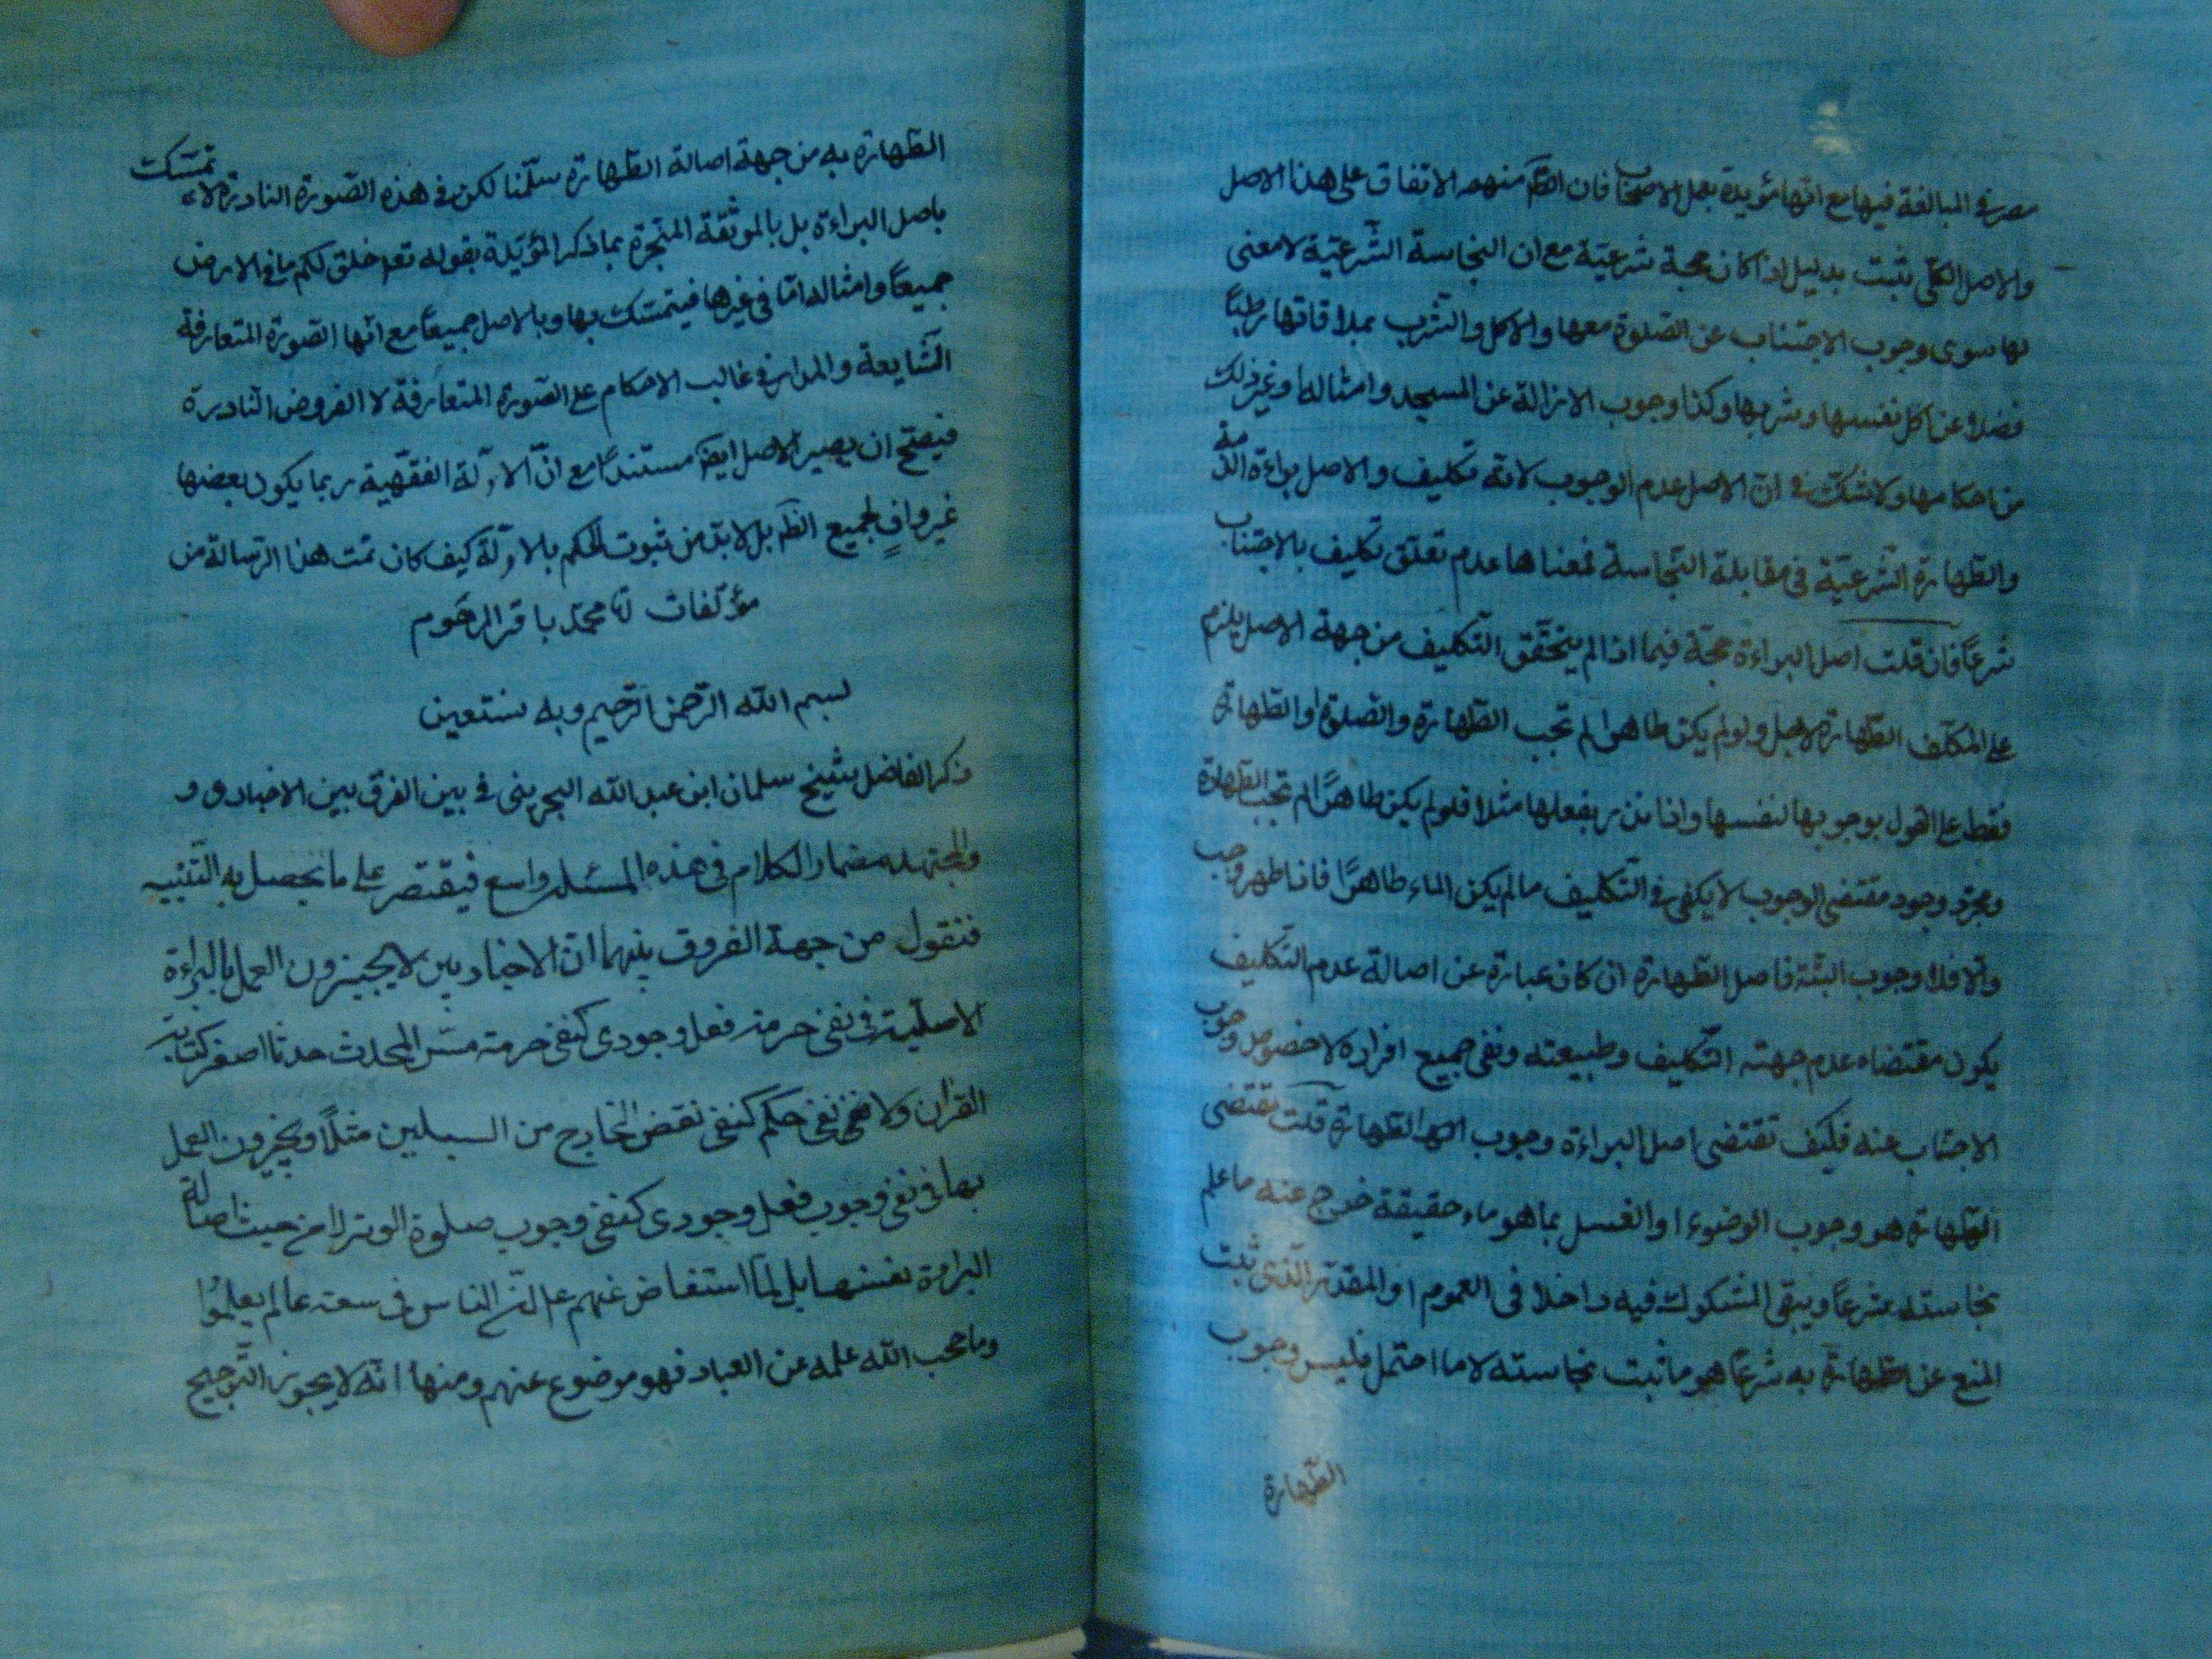 مصر في المبالغة فيها مع انها مؤيدة بعمل الاصحاب فان الظم منهم الاتفاق على هذا الاصل
والاصل الكلي يثبت بدليل اذا كان حجة شرعية مع ان النجاسة الشرعية لا معنى
لها سوى وجوب الاجتناب عن الصلوة معها والاكل والشرب بملاقاتها رطبا
فضلا عن اكل نفسها وشربها وكذا وجوب الازالة عن المسجد وامثالها وغير ذلك
من احكامها ولا شك في ان الاصل عدم الوجوب لانه تكليف والاصل براءة الذمة
والطهارة الشرعية في مقابلة النجاسة فمعناها عدم تعلق تكليف بالاجتناب
شرعًا فان قلت اصل البراءة حجة فيما اذا لم يتحقق التكليف من جهة الاصل يلزم
على المكلف الطهارة لاجل ولو لم يكن طاهرا لم تجب الطهارة والصلوة او الطهارة
فقط على القول بوجوبها لنفسها واذا نذر بفعلها مثلا فلو لم يكن طاهرًا لم تجب الطهارة
ومجرد وجود مقتضى الوجوب لا يكفى في التكليف ما لم يكن الماء طاهرًا فاذا طهر وجب
والا فلا وجوب البتة فاصل الطهارة ان كان عبارة عن اصالة عدم التكليف
يكون مقتضاه عدم جهته التكليف وطبيعته ونفى جميع افراده لا خصوص وجوب
الاجتناب عنه فكيف تقتضى اصل البراءة وجوب الطهارة قلت تقتضى
الطهارة هو وجوب الوضوء او الغسل بما هو ماء حقيقة خرج عنه ما علم
نجاسته شرعًا ويبقى المشكوك فيه داخلا في العموم او المقدر الذى ثبت
المنع عن الطهارة به شرعًا هو ما ثبت نجاسته لا ما احتمل فليس وجوب
الطهارة
الطهارة به من جهة اصالة الطهارة سلمنا لكن في هذه الصورة النادرة لانه تمسكت
باصل البراءة بل بالموثقة المنجرة بما ذكر المؤيدة بقوله تعم خلق لكم ما في الارض
جميعًا وامثاله امّا في غيرها فيتمسك بها وبالاصل جميعًا مع انها الصورة المتعارفة
الشايعة والمدار في غالب الاحكام على الصورة المتعارفة لا الفروض النادرة
فيصح ان يصير الاصل ايضم مستندًا مع ان الادلة الفقهية ربما يكون بعضها
غير وافٍ لجميع الظم بل لا بد من ثبوت الحكم بالادلة كيف كان تمت هذا الرسالة من
مؤلفات محمد باقر المرحوم
بسم الله الرحمن الرحيم وبه نستعين
ذكر الفاضل شيخ سلمان ابن عبد الله البحرينى في بين الفرق بين الاخبارى و
والمجتهد مضمار الكلام في هذه المسئلة واسع فيقتصر على ما يحصل به التنبيه
فنقول من جهة الفروق بينهما ان الاخباريين لا يجيزون العمل بالبراءة
الاصلية في نفى حرمة فعل وجودى كنفى حرمة مس المحدث حدثا اصغر كتابة
القرآن ولا في نفى حكم كنفى نقض الخارج من السبيلين مثلًا ويجيزون العمل
بها في نفى وجوب فعل وجودى كنفى وجوب صلوة الوتر لا من حيث اصالة
البراءة نفسها بل لما استفاض عنهم ع ان الناس في سعة عما لم يعلموا
وما حجب الله علمه عن العباد فهو موضوع عنهم ومنها انه لا يجوز الترجيح